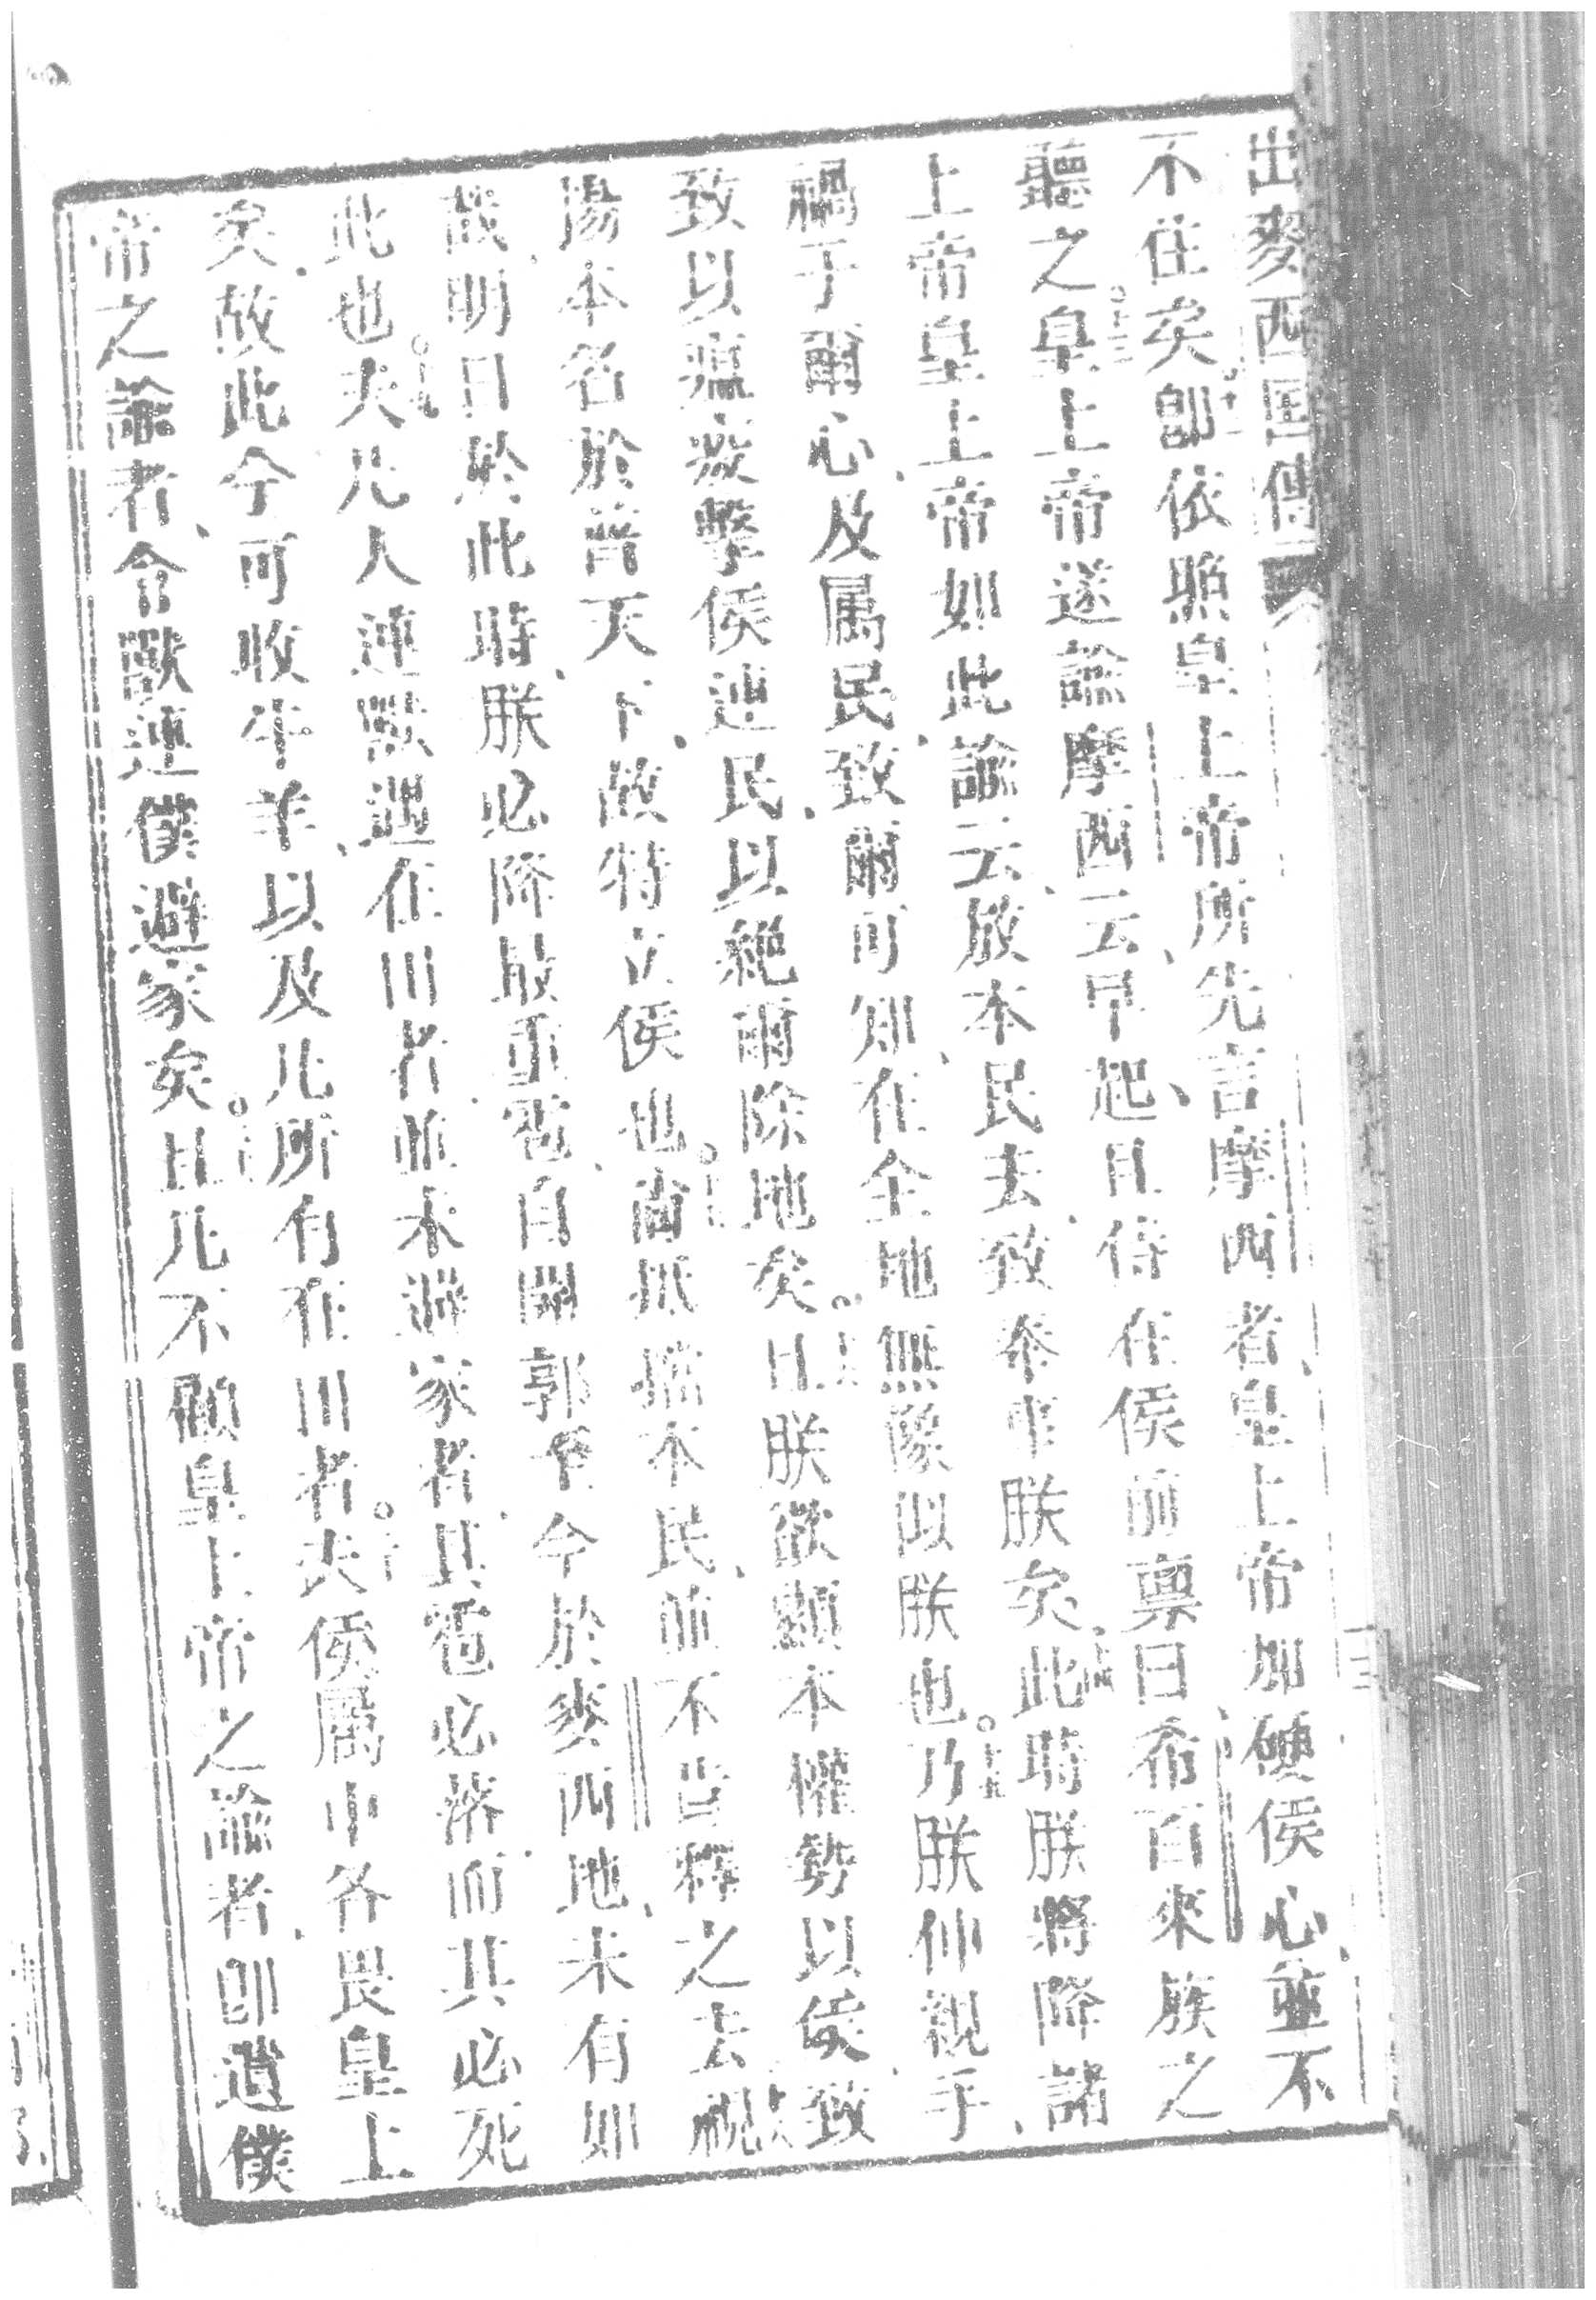 出麥西国傳
不住矣卽依照皇上帝所先言摩西者皇上帝加硬侯心並不
聽之皇上帝遂諭摩西云早起且侍在侯前禀曰希百來族之
上帝皇上帝如此諭云放本民去致奉事朕矣此時朕將降諸
禍于爾心及属民致爾可知在全地無像似朕也乃朕伸親手
致以瘟疫擊侯連民以絕爾除地矣且朕欲顯本權勢以侯致
揚本名於普天下故特立侯也尚抵擋本民並不肯釋之去視
哉明日於此時朕必降最重雹自開郭至今於麥西地未有如
此也夫凡人連獸遇在田者並未避家者其雹必落而其必死
矣故此今可收牛羊以及凡所有在田者夫侯属中各畏皇上
帝之諭者令獸連僕避家矣且凡不顧皇上帝之諭者卽遺僕